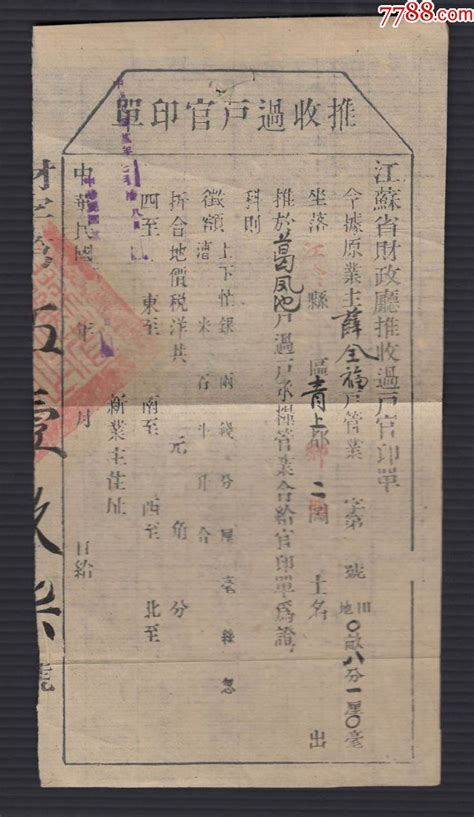 7788.com
推收過戶官印單
江蘇省財政廳推收過戶官印單
今據原業主薛全福戶管業 字第 號 田地 〇畝八分一厘〇毫
坐落 縣 區青上鄉二圖 土名 出
推於葛鳳池戶過戶承糧管業合給官印單爲證
科則
徵額 上下忙銀 兩 錢 分 厘 毫 絲 忽
漕 米 石 斗 升 合
折合地價稅洋共 元 角 分
四至 東至 南至 西至 北至
新業主住址
中華民國 年 月 日給
財字第伍壹 號